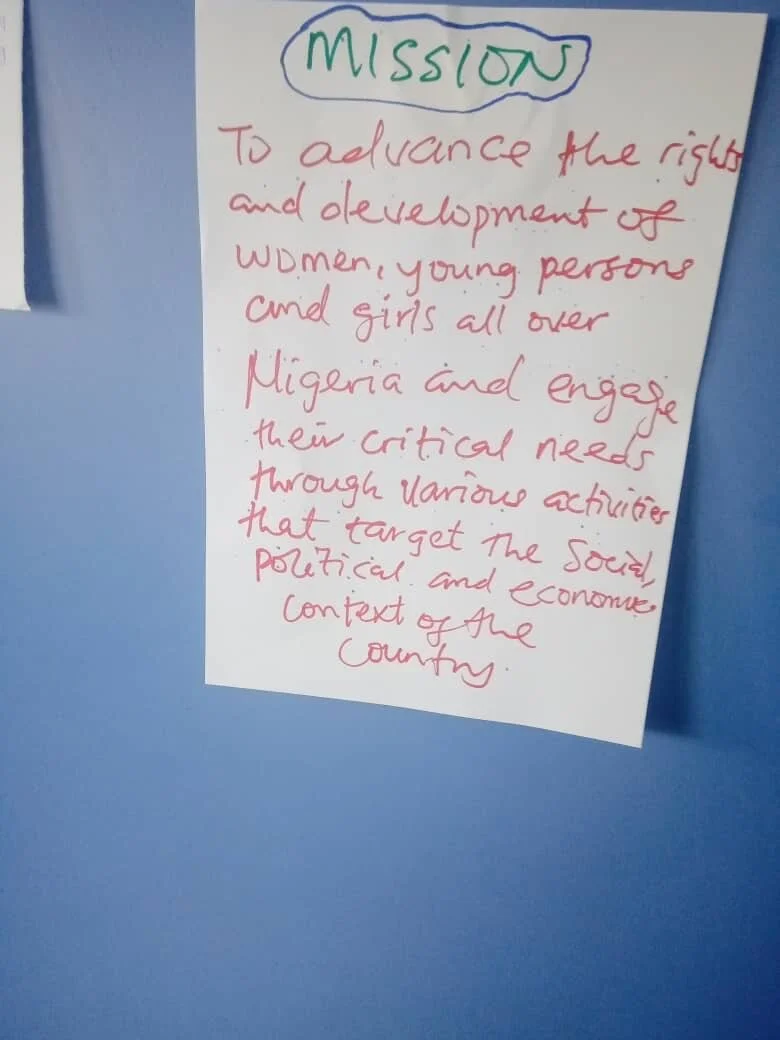 MISSION
To advance the rights
and development of
women, young persons
and girls all over
Nigeria and engage
their critical needs
through various activities
that target the Social,
political and economic
context of the
country.